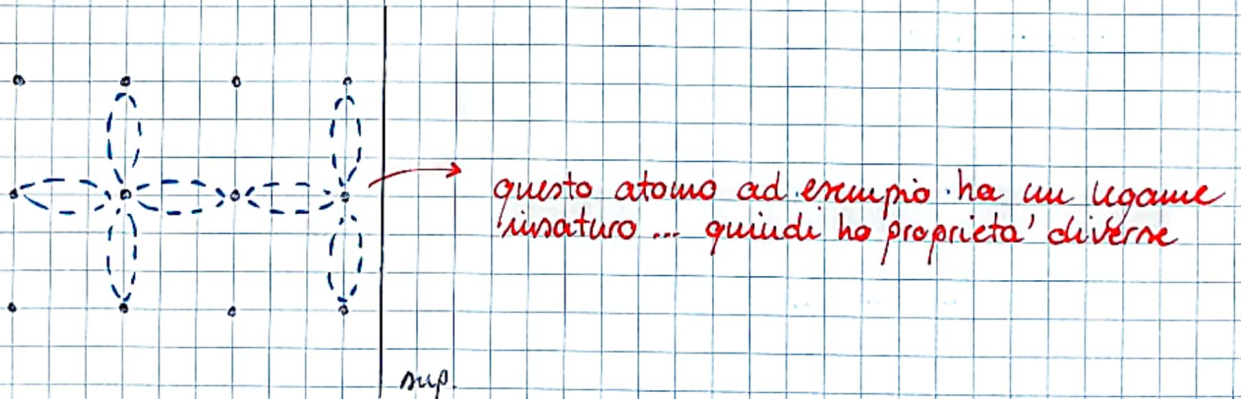 questo atomo ad esempio ha un legame
insaturo ... quindi ho proprietà diverse
sup.